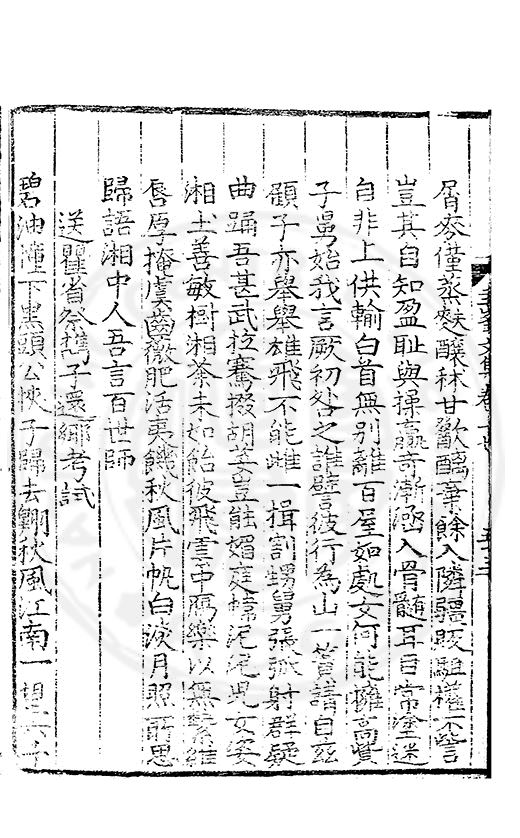 屑麥僅蒸麩釀秫甘歠醨棄餘入隣疆販駔權不訾
豈其自知盈恥與操贏奇漸涵入骨髓耳目常塗迷
自非上供輸白首無別離百屋如處女何能擁高貲
子寧始我言厥初咎之誰譬彼行為山一簣請自茲
顧子亦舉舉雄飛不能雌一揖割甥舅張弧射群疑
曲踊吾甚武控騫掇胡荽豈能媚庭幃泥泥兒女姿
湘土善敏樹湘茶未如飴彼飛雲中鴈樂以無縶維
唇厚掩虞齒薇肥活夷饑秋風片帆白淡月照所思
歸語湘中人吾言百世師
送瞿省祭攜子還鄉考試
碧油幢下黑頭公恢子歸去鵬秋風江南一望六千